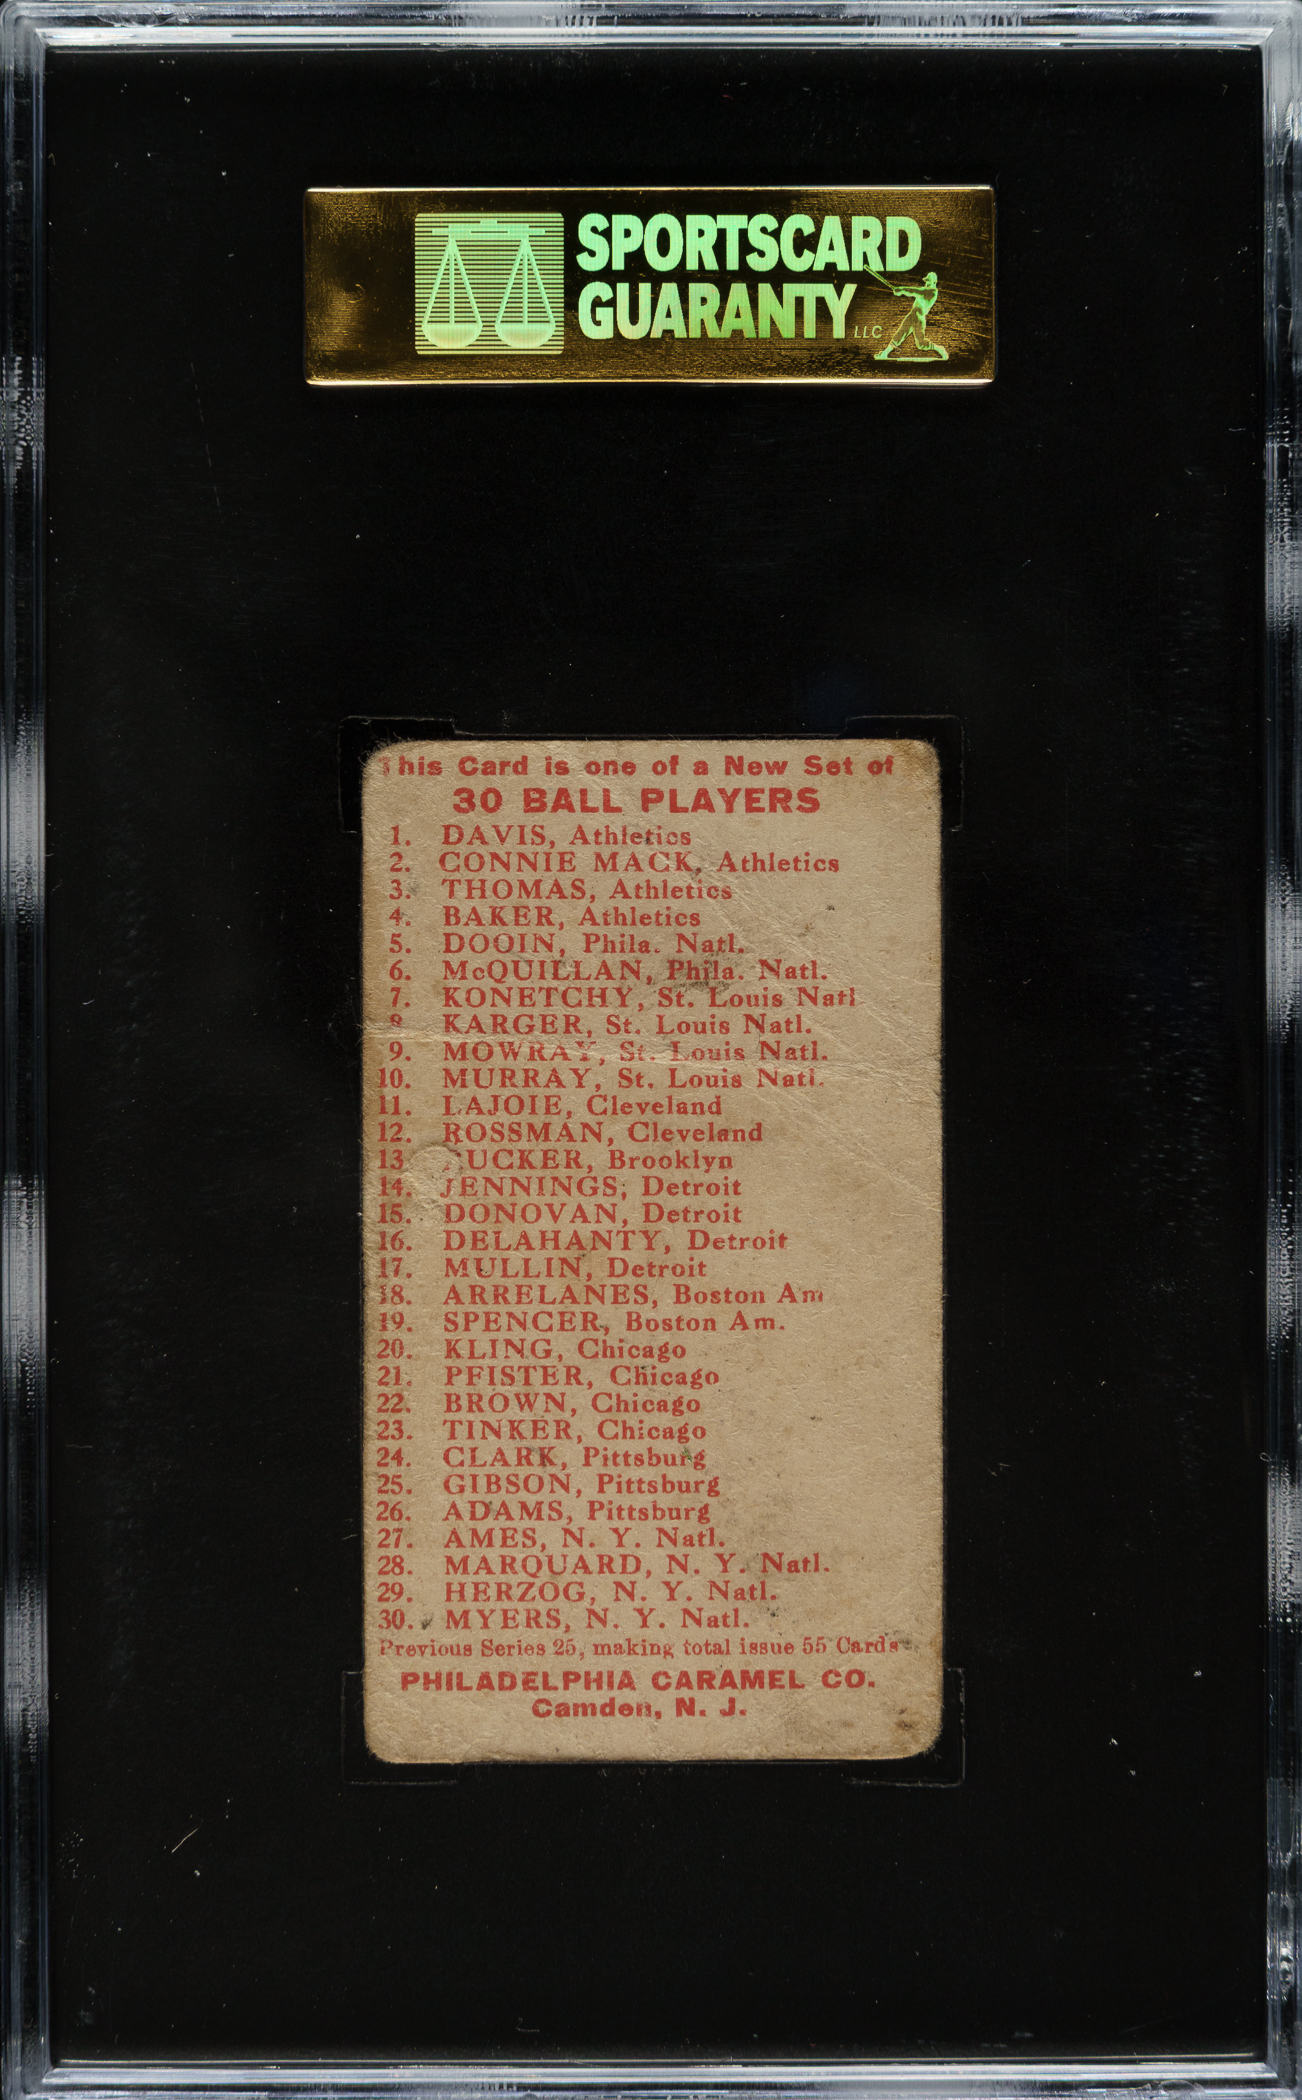 SPORTSCARD
GUARANTY LLC
This Card is one of a New Set of
30 BALL PLAYERS
1. DAVIS, Athletics
2. CONNIE MACK, Athletics
3. THOMAS, Athletics
4. BAKER, Athletics
5. DOOIN, Phila. Natl.
6. McQUILLAN, Phila. Natl.
7. KONETCHY, St. Louis Natl
8 KARGER, St. Louis Natl.
9. MOWRAY, St. Louis Natl.
10. MURRAY, St. Louis Natl.
11. LAJOIE, Cleveland
12. ROSSMAN, Cleveland
13 RUCKER, Brooklyn
14. JENNINGS, Detroit
15. DONOVAN, Detroit
16. DELAHANTY, Detroit
17. MULLIN, Detroit
18. ARRELANES, Boston Am
19. SPENCER, Boston Am.
20. KLING, Chicago
21. PFISTER, Chicago
22. BROWN, Chicago
23. TINKER, Chicago
24. CLARK, Pittsburg
25. GIBSON, Pittsburg
26. ADAMS, Pittsburg
27. AMES, N. Y. Natl.
28. MARQUARD, N. Y. Natl.
29. HERZOG, N. Y. Natl.
30. MYERS, N. Y. Natl.
Previous Series 25, making total issue 55 Cards
PHILADELPHIA CARAMEL CO.
Camden, N. J.